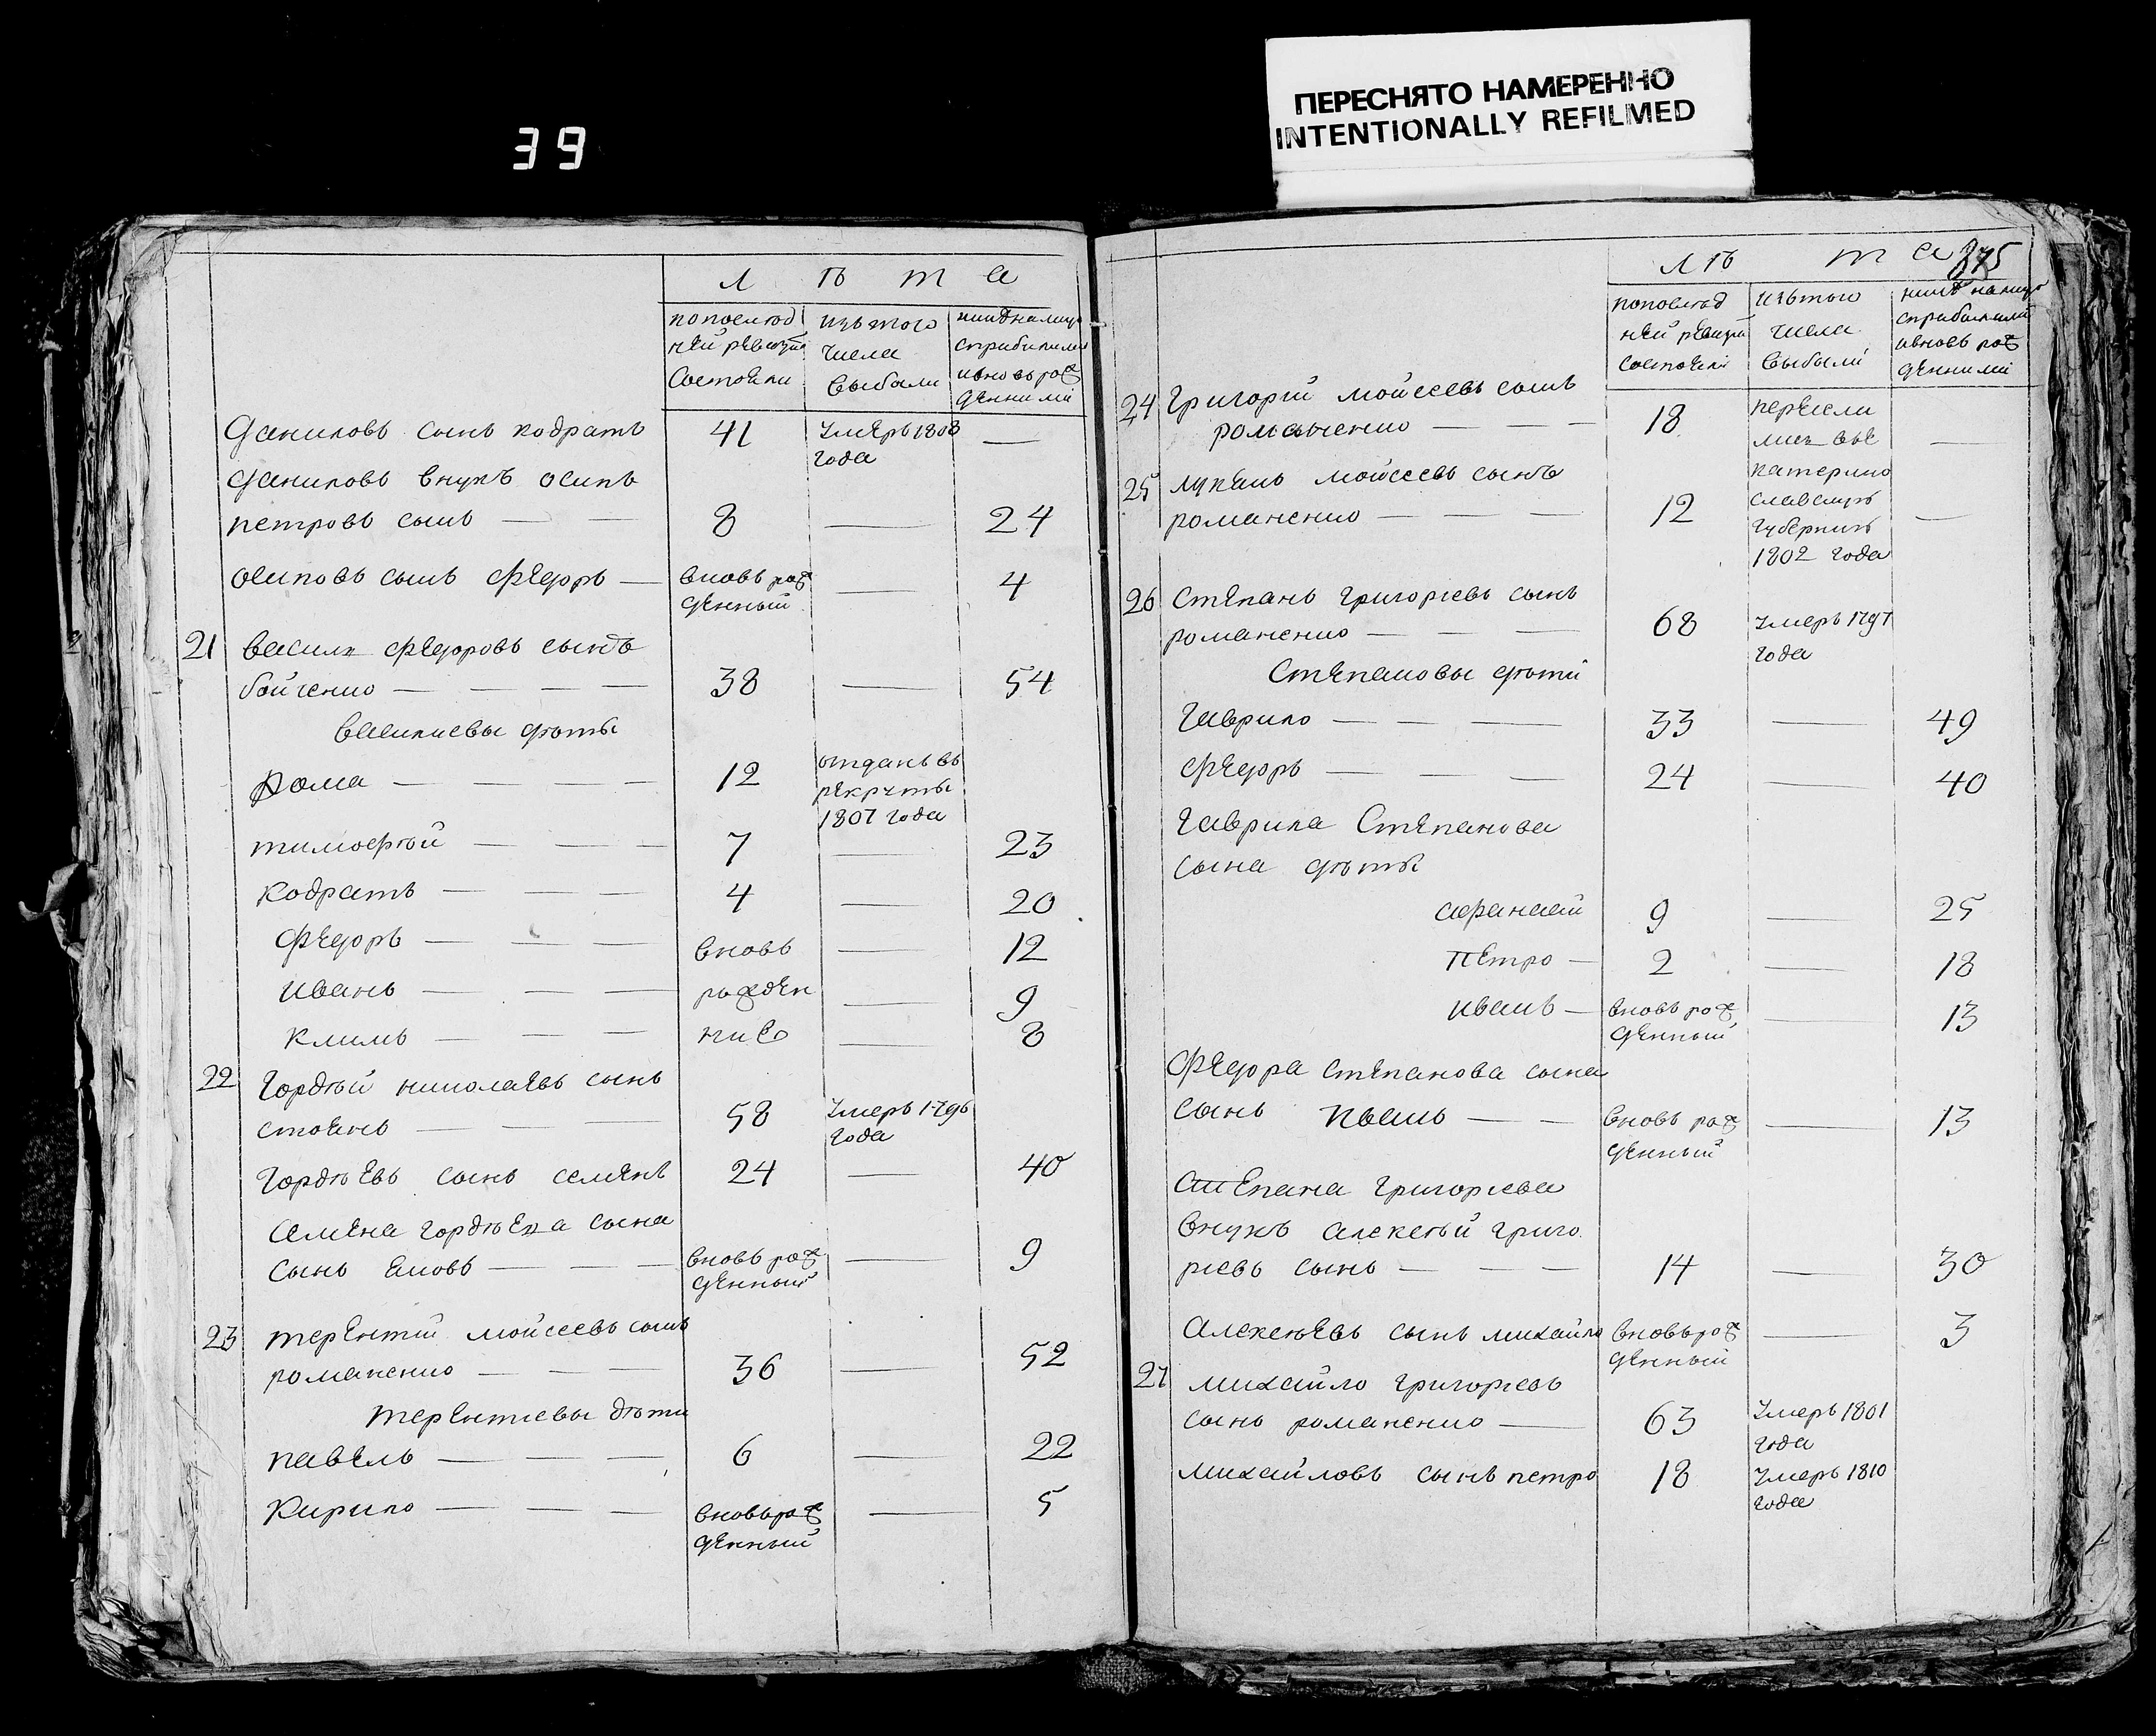 39
ПЕРЕСНЯТО НАМЕРЕННО
INTENTIONALLY REFILMED
Л ѣ т а
попослѣд изътого нынѣналицо
ней ревизіи числа сприбылыми
Состояли выбыли ивновьрож
денными
Даниловъ сынъ кодратъ 41 умеръ 1808 —
года
Даниловъ внукъ осипъ
петровъ сынъ — — 8 — 24
осиповъ сынъ Федоръ — вновь рож — 4
денный
21 василий Федоровъ сынъ
бойченко — — — — 38 — 54
василиевы дѣти
Фома — — — 12 отданъ въ
рекруты
1807 года
тимофѣй — — — 7 — 23
кодратъ — — — 4 — 20
Федоръ — — вновь — 12
иванъ — — — рожден — 9
климъ — — — ние — 8
22 гордѣй николаевъ сынъ
стоянъ — — — 58 умеръ 1796
года
гордѣевъ сынъ семенъ 24 — 40
семена гордѣева сына
сынъ яковъ — — — вновь рож — 9
денный
23 терентий мойсеевъ сынъ
романенко — — 36 — 52
терентиевы дѣти
павелъ — — — 6 — 22
Кирило — — — вновьрож — 5
денный
875
Л ѣ т а
попослѣд изътого нынѣ налицо
ней ревизіи числа сприбылыми
состояли выбыли ивновь рож
денными
24 григорий мойсеевъ сынъ
романченко — — — 18 пересели
лись въе —
катерино
25 лукянъ мойсеевъ сынъ
романенко — — — 12 славскую
губернию —
1802 года
26 Степанъ григориевъ сынъ
романенко — — — 68 умеръ 1797
года
Степановы дѣти
гаврило — — — 33 — 49
Федоръ — — — 24 — 40
гаврила Степанова
сына дѣти
афанасий 9 — 25
Петро — 2 — 18
иванъ — вновь рож — 13
денный
Федора степанова сына
сынъ иванъ — — вновь рож — 13
денный
степана григориева
внукъ алексѣй григо
риевъ сынъ — — — 14 — 30
алексѣевъ сынъ михайло вновьрож — 3
денный
27 михайло григориевъ
сынъ романенко — 63 умеръ 1801
года
михайловъ сынъ петро 18 умеръ 1810
года